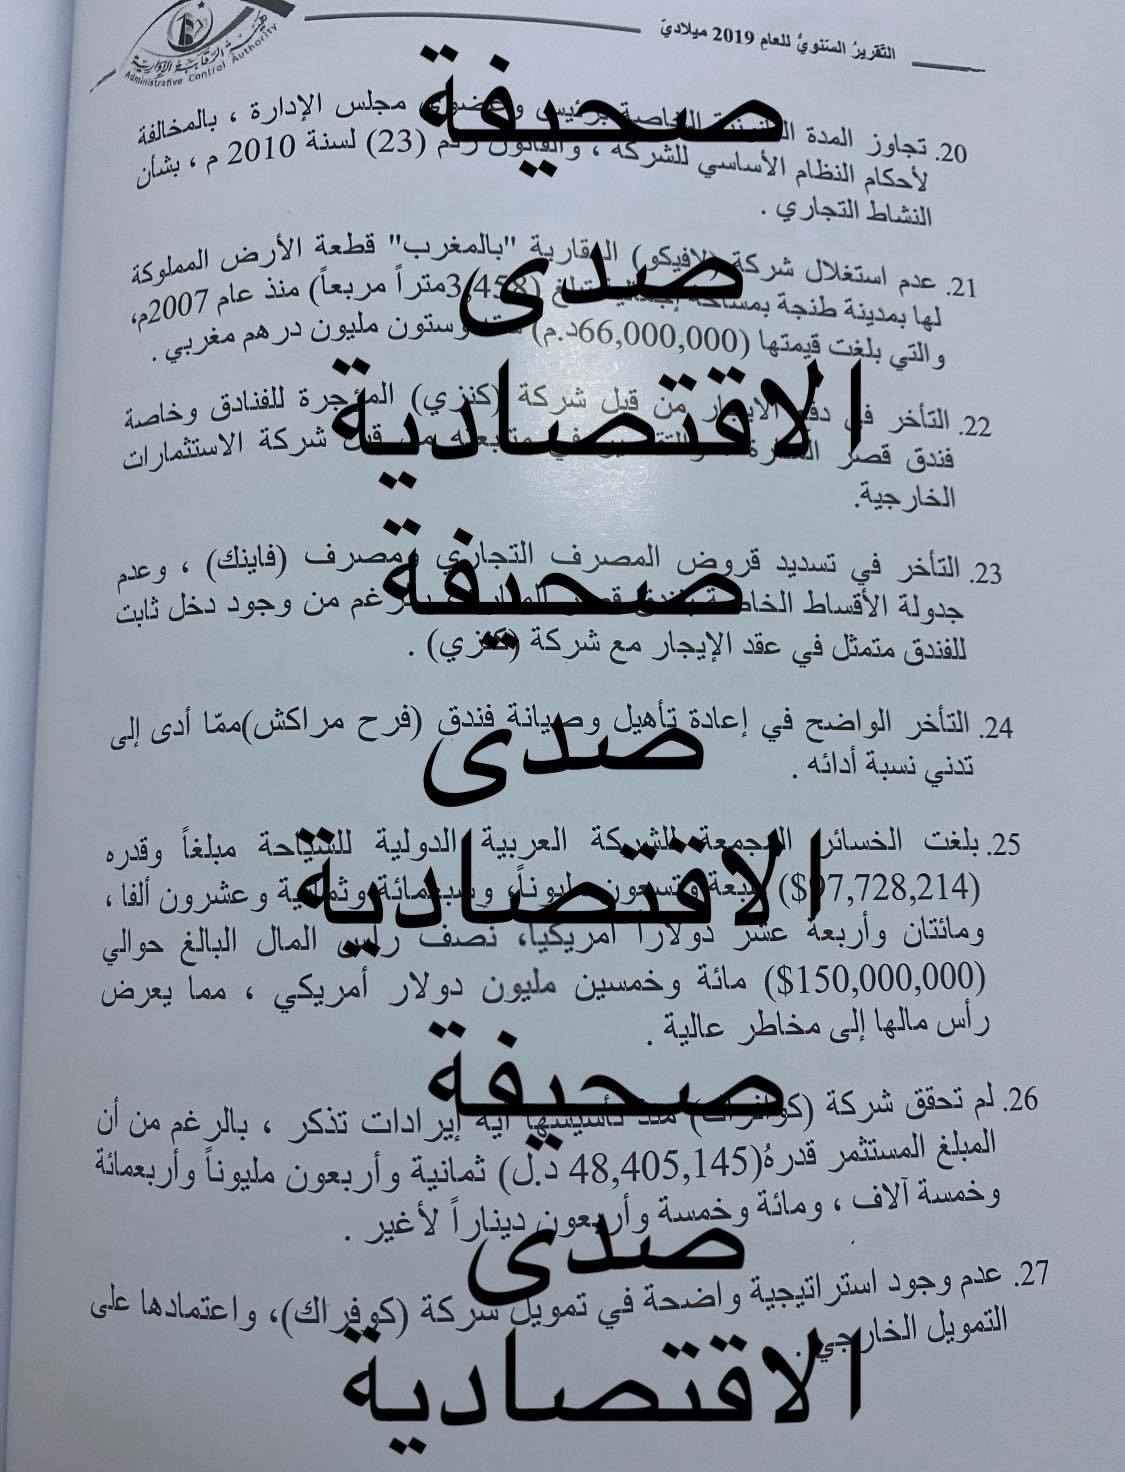 التقرير السنوي للعام 2019 ميلادي
هيئة الرقابة الإدارية
Administrative Control Authority
20. تجاوز المدة الخاصة برئيس وعضوي مجلس الإدارة ، بالمخالفة
لأحكام النظام الأساسي للشركة ، والقانون رقم (23) لسنة 2010 م ، بشأن
النشاط التجاري .
صحيفة
21. عدم استغلال شركة (لافيكو) العقارية "بالمغرب" قطعة الأرض المملوكة
لها بمدينة طنجة بمساحة إجمالية تبلغ (3,458متراً مربعاً) منذ عام 2007م،
والتي بلغت قيمتها (66,000,000د.م) ستة وستون مليون درهم مغربي .
صدى
22. التأخر في دفع الايجار من قبل شركة (كنزي) المؤجرة للفنادق وخاصة
فندق قصر في متابعته من قبل شركة الاستثمارات
الخارجية.
الاقتصادية
23. التأخر في تسديد قروض المصرف التجاري ومصرف (فاينك) ، وعدم
جدولة الأقساط الخاصة بفندق قصر بالرغم من وجود دخل ثابت
للفندق متمثل في عقد الإيجار مع شركة (كنزي) .
صحيفة
24. التأخر الواضح في إعادة تأهيل وصيانة فندق (فرح مراكش)ممّا أدى إلى
تدني نسبة أدائه .
صدى
25. بلغت الخسائر المجمعة للشركة العربية الدولية للسياحة مبلغاً وقدره
($97,728,214) سبعة وتسعون مليوناً، وسبعمائة وثمانية وعشرون ألفا ،
ومائتان وأربعة عشر دولاراً أمريكياً، نصف رأس المال البالغ حوالي
($150,000,000) مائة وخمسين مليون دولار أمريكي ، مما يعرض
رأس مالها إلى مخاطر عالية .
الاقتصادية
26. لم تحقق شركة منذ تأسيسها أية إيرادات تذكر ، بالرغم من أن
المبلغ المستثمر قدرهُ(48,405,145 د.ل) ثمانية وأربعون مليوناً وأربعمائة
وخمسة آلاف ، ومائة وخمسة وأربعون ديناراً لأغير .
صحيفة
27. عدم وجود استراتيجية واضحة في تمويل شركة (كوفراك)، واعتمادها على
التمويل الخارجي .
صدى
الاقتصادية